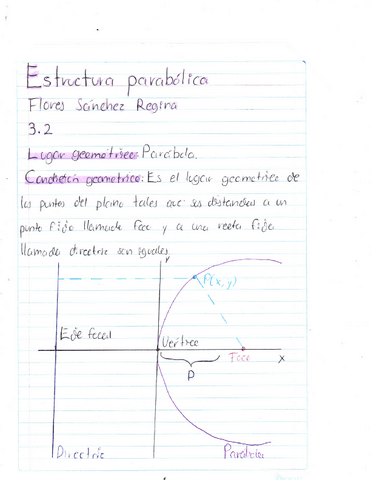 Estructura parabólica
Flores Sánchez Regina
3.2
Lugar geométrico: Parábola.
Condición geometrica: Es el lugar geometrico de
los puntos del plano tales que sus distancias a un
punto fijo llamado foco y a una recta fija
llamada directriz son iguales.
y
P(x,y)
Eje focal
Vértice
Foco
x
P
Directriz
Parábola